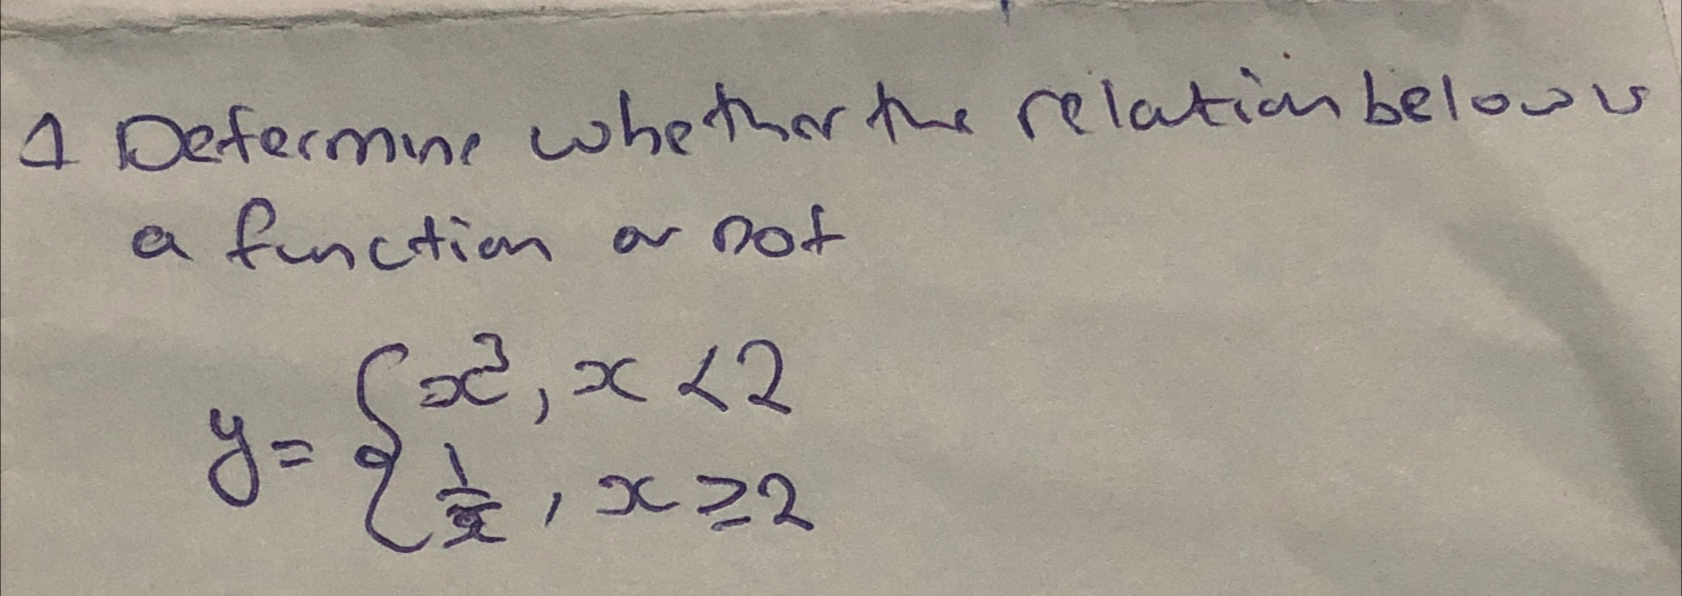 1 Determine whether the relation below is
a function or not
y= { x³, x < 2
1/x, x ≥ 2